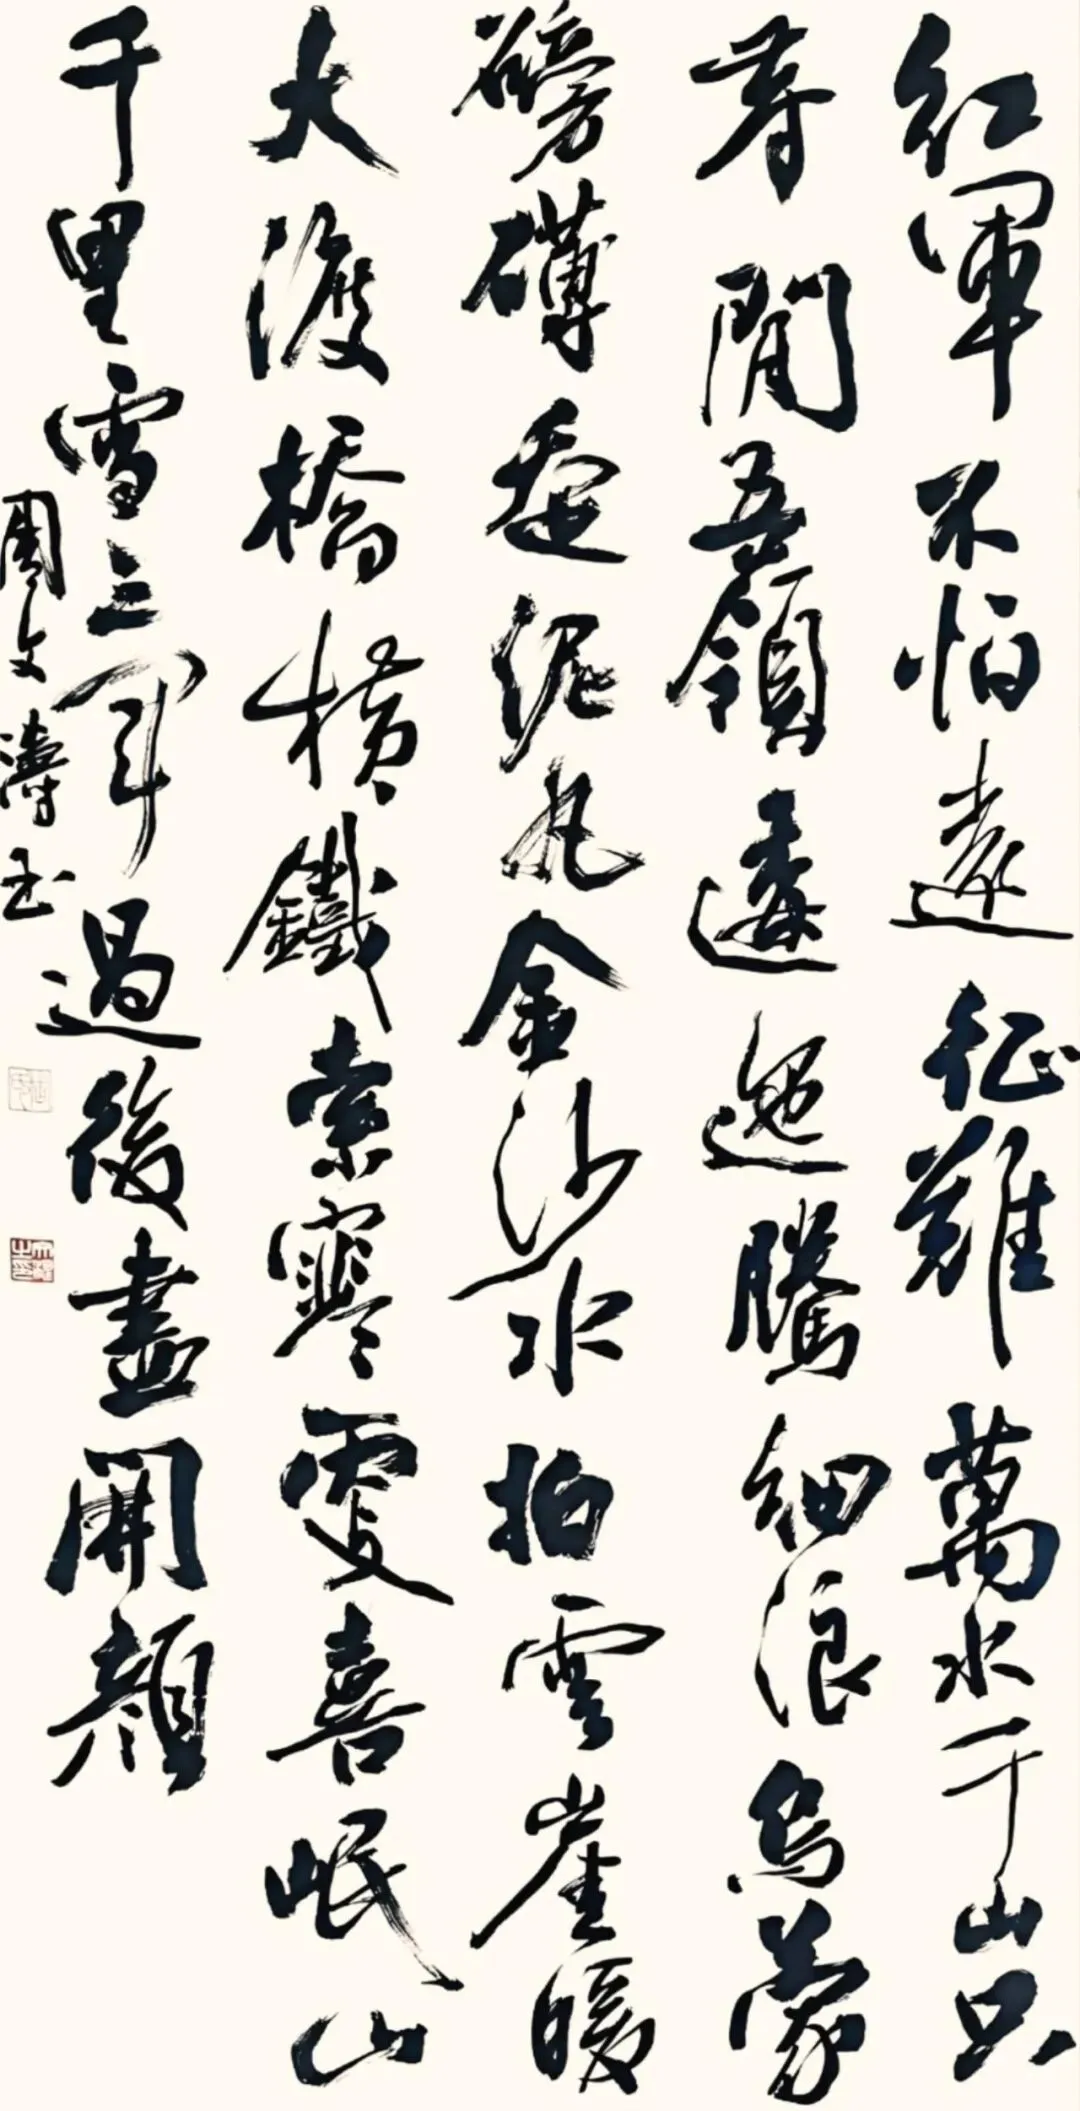 紅軍不怕遠征難萬水千山只
等閒五領逶迤騰細浪烏蒙
磅礴走泥丸金沙水拍雲崖暖
大渡橋橫鐵索寒更喜岷山
千里雪三軍過後盡開顏
周文濤書